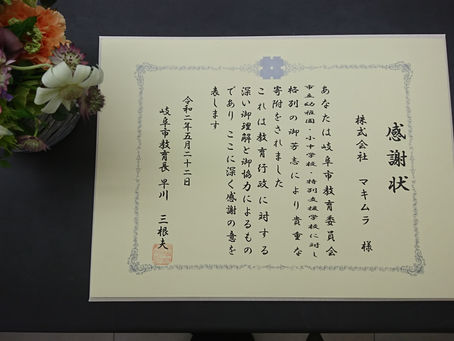 感謝状
株式会社 マキムラ 様
あなたは岐阜市教育委員会
市立幼稚園・小中学校・特別支援学校に対し
格別の御芳志により貴重な
寄附をされました
これは教育行政に対する
深い御理解と御協力によるもの
であり ここに深く感謝の意を
表します
令和二年五月二十二日
岐阜市教育長 早川 三根夫